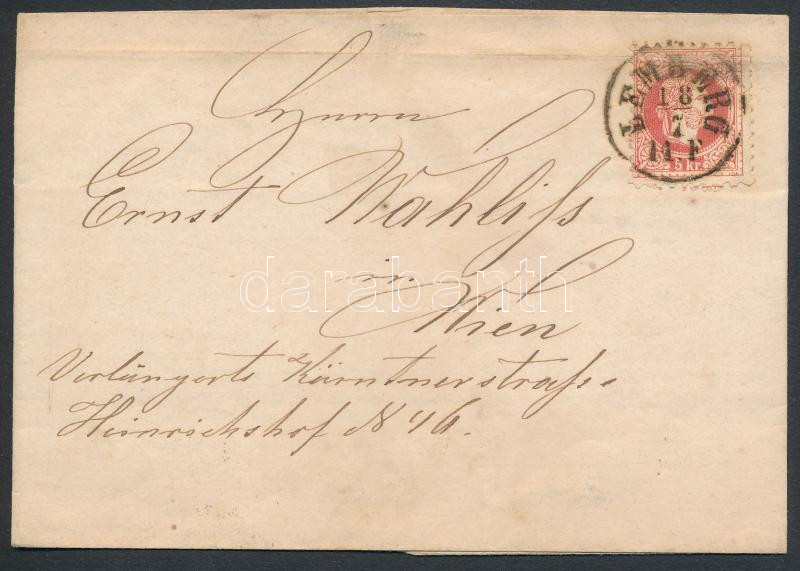 LEMBERG
18
7
11.F
5 kr.
Herrn
Ernst Wahliss
in
Wien
Verlängerte Kärntnerstrasse
Heinrichshof N 46.
darabanth